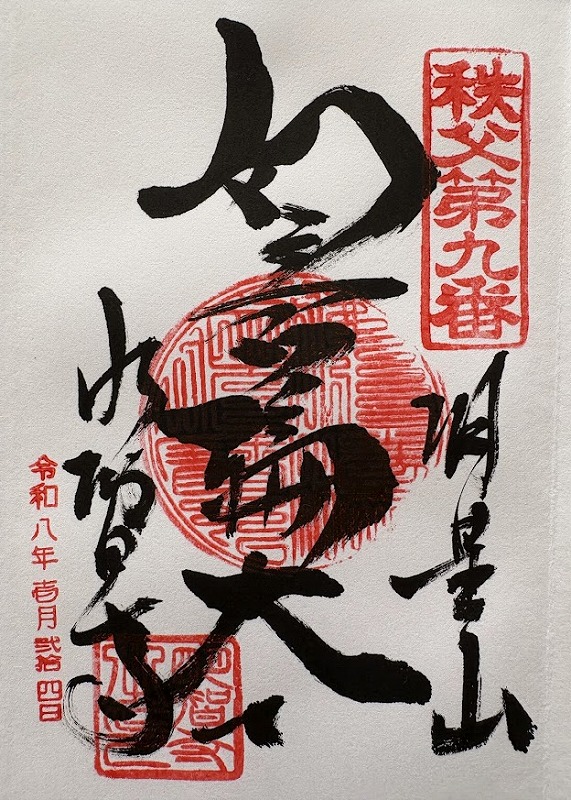 秩父第九番
明星山
如意輪大士
明智寺
令和八年壱月弐拾四日